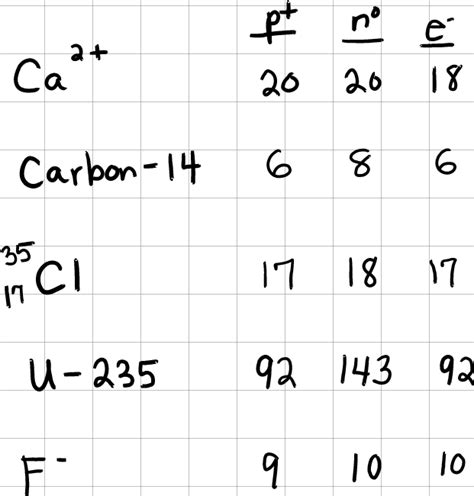 p⁺ n⁰ e⁻
Ca²⁺ 20 20 18
Carbon-14 6 8 6
³⁵₁₇Cl 17 18 17
U-235 92 143 92
F⁻ 9 10 10